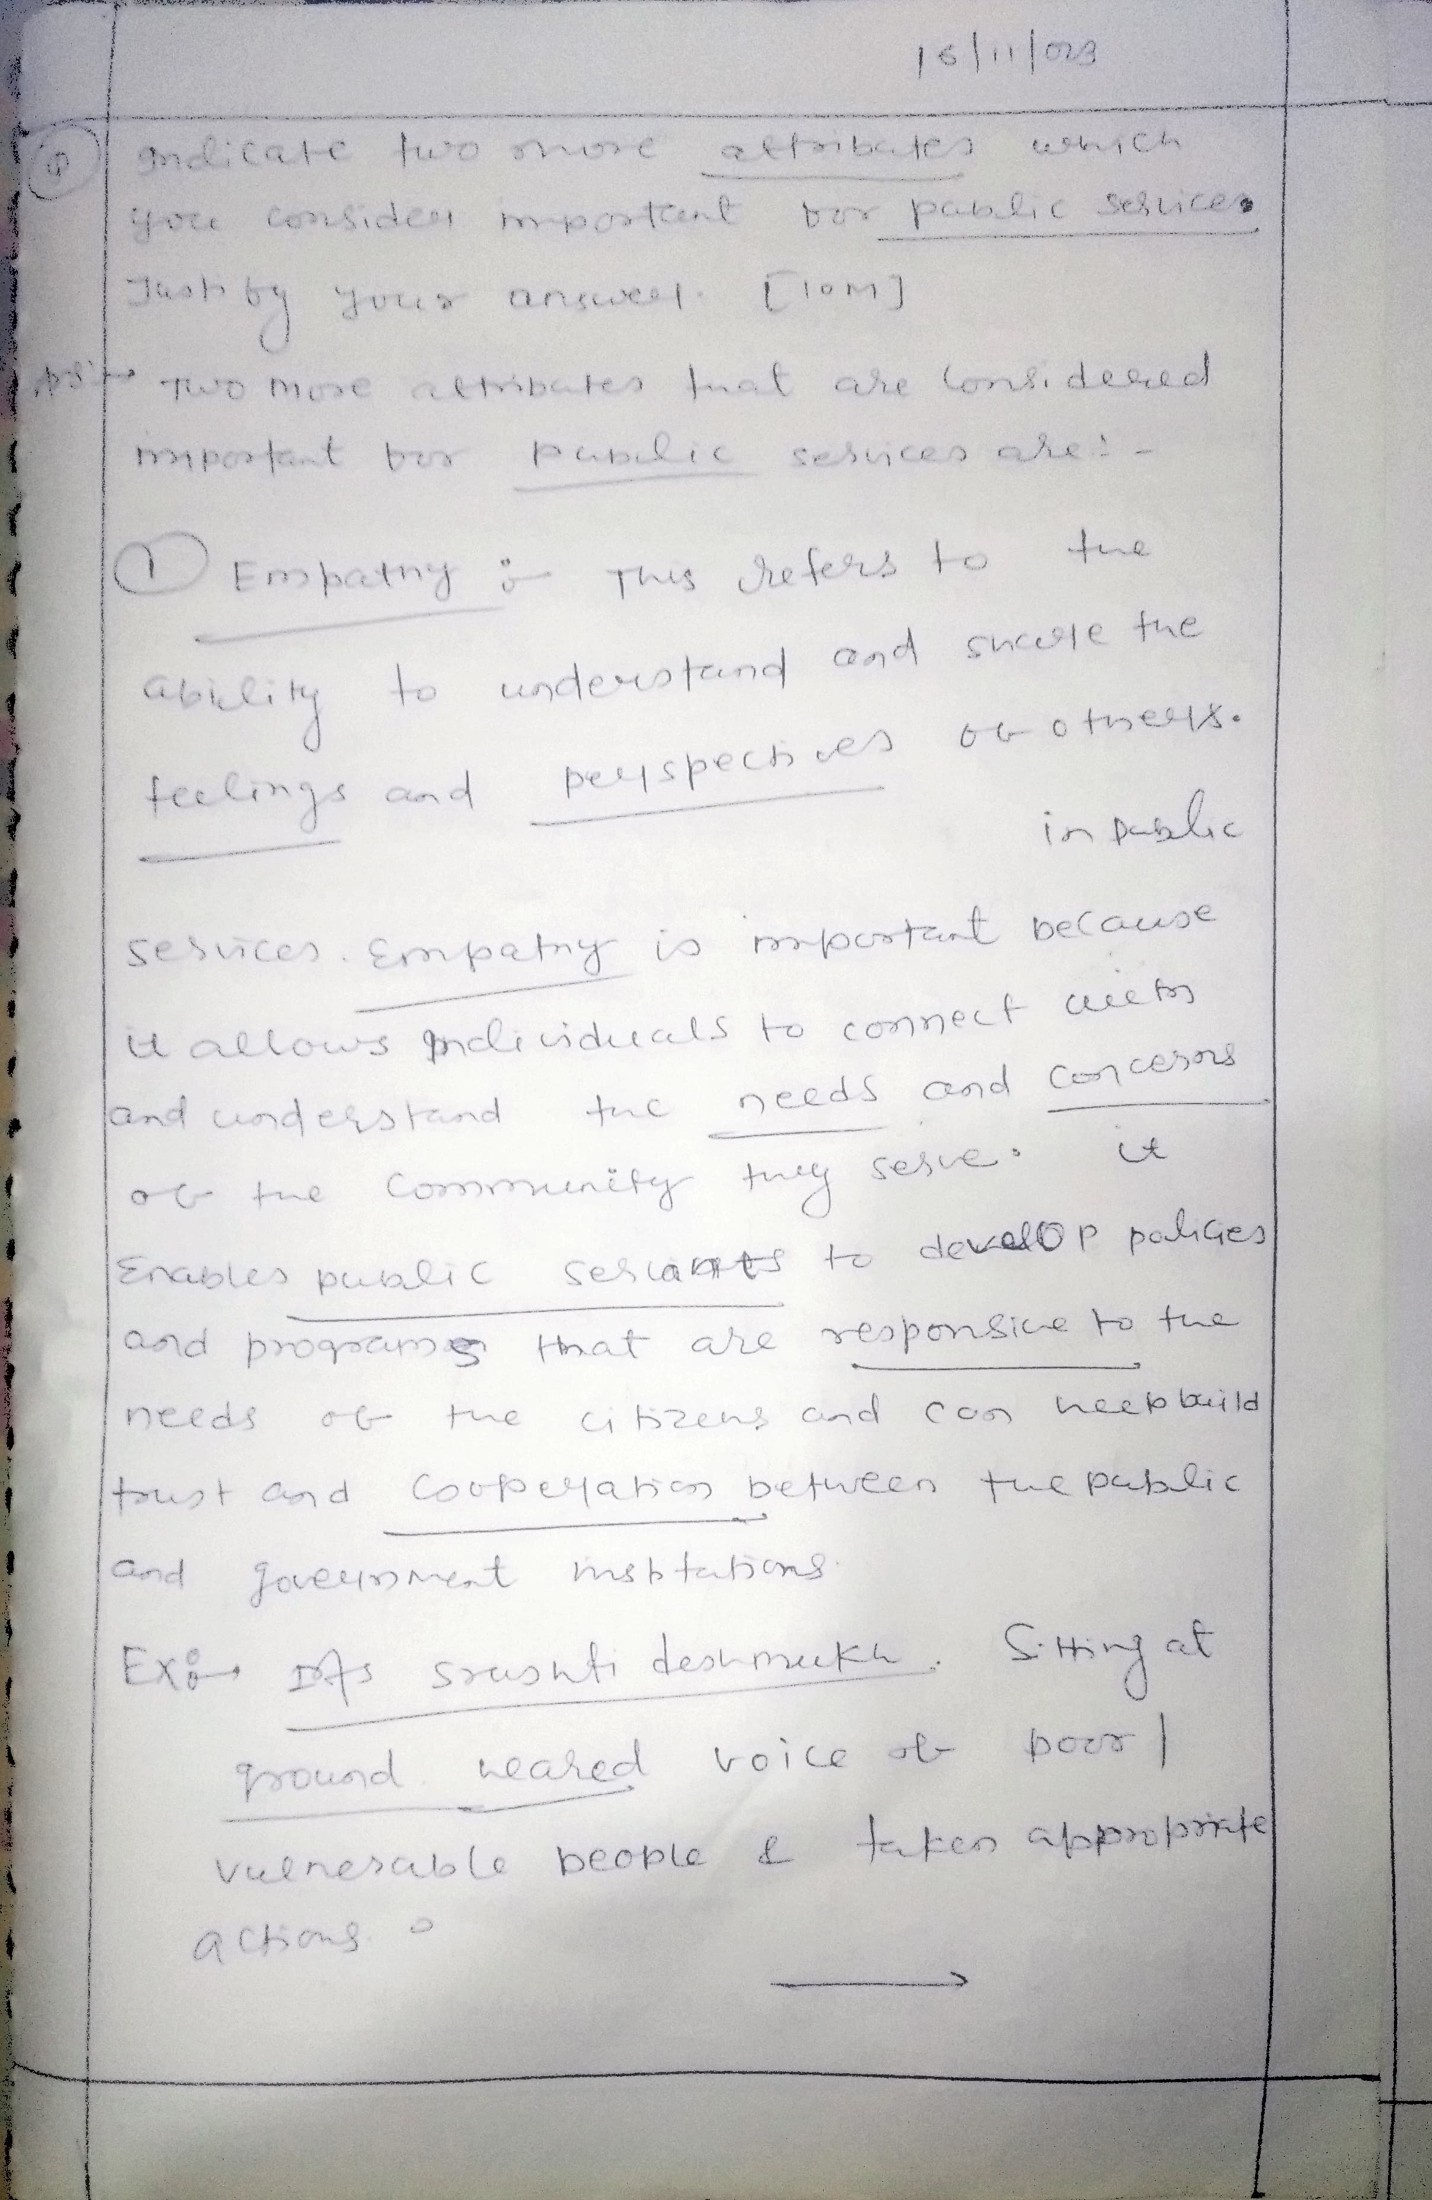 16/11/023
Q indicate two more attributes which
you consider important for public services.
Justify your answer. [10M]
Two more attributes that are considered
important for public services are:-
① Empathy :- This refers to the
ability to understand and share the
feelings and perspectives of others.
in public
services. Empathy is important because
it allows individuals to connect with
and understand the needs and concerns
of the community they serve. it
Enables public servants to develop policies
and programs that are responsive to the
needs of the citizens and can help build
trust and cooperation between the public
and government institutions.
Ex:→ IAS Srushti deshmukh. Sitting at
ground heared voice of poor |
vulnerable people & taken appropriate
actions.
→